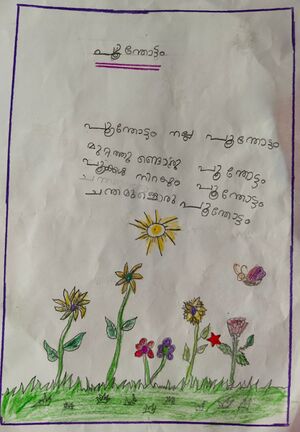 പൂന്തോട്ടം
പൂന്തോട്ടം നല്ല പൂന്തോട്ടം
മുറ്റത്തുണ്ടൊരു പൂന്തോട്ടം
പൂക്കൾ നിറയും പൂന്തോട്ടം
ചന്തമുള്ളൊരു പൂന്തോട്ടം